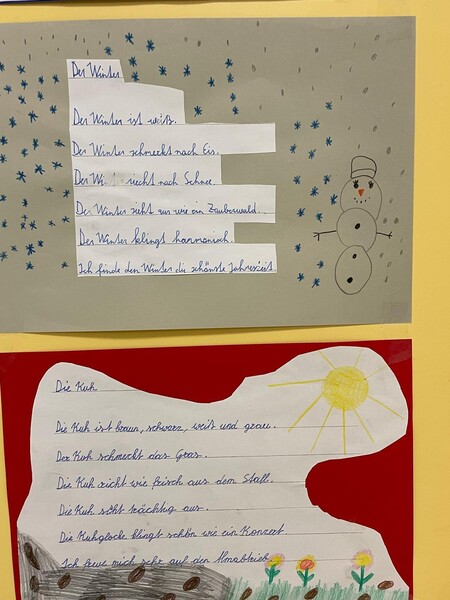 Der Winter
Der Winter ist weiß.
Der Winter schmeckt nach Eis.
Der Wi riecht nach Schnee.
Der Winter sieht aus wie ein Zauberwald.
Der Winter klingt harmonisch.
Ich finde den Winter die schönste Jahreszeit
Die Kuh
Die Kuh ist braun, schwarz, weiß und grau.
Der Kuh schmeckt das Gras.
Die Kuh riecht wie frisch aus dem Stall.
Die Kuh sieht trächtig aus.
Die Kuhglocke klingt schön wie ein Konzert.
Ich freue mich sehr auf den Almabtrieb